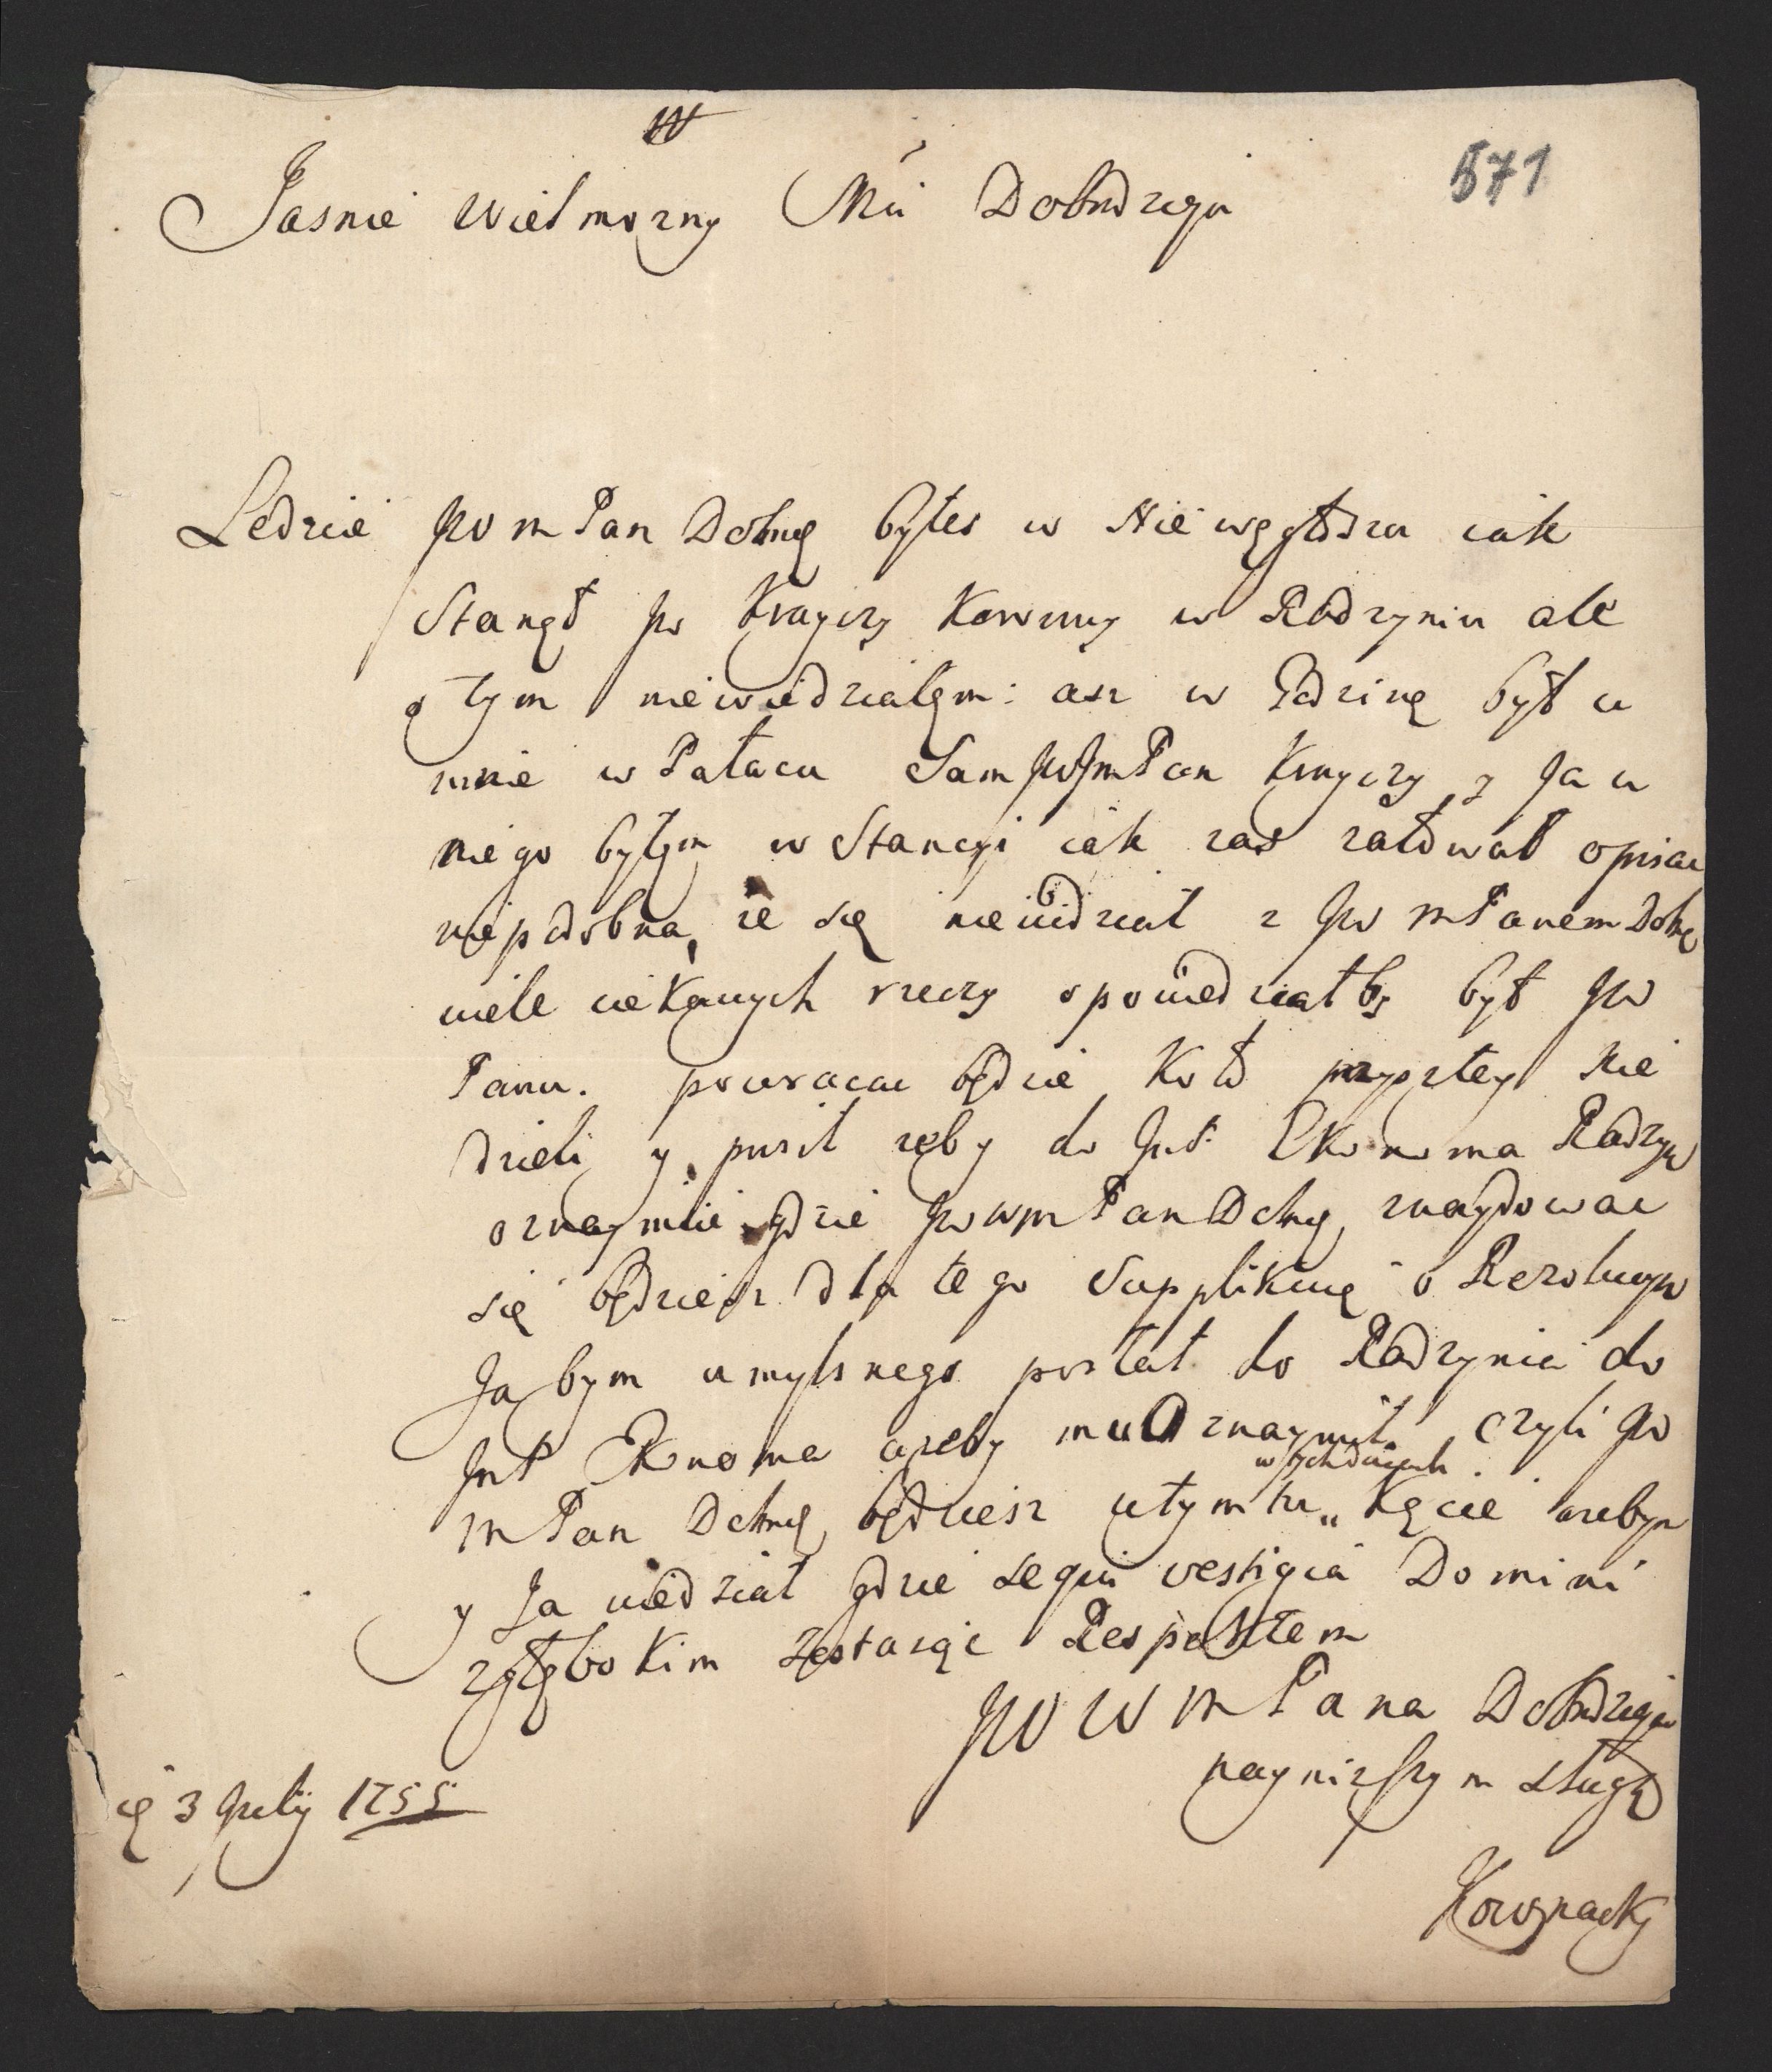 571
Jasnie Wielmozny Mci Dobrodzieju
Ledzie JW m Pan Dobrę byłes w Niewęgłszu iak
Stanął JW Krayczy Koronny w Radzyniu ale
o tym niewiedziałęm: asz w Godzinę był u
mnie w Pałacu Sam JWJm Pan Krayczy y Ja u
niego byłęm w Stancyi iak zas załował opisac
niepodobna, ze się niewidział z JW mPanem Dobrę
wiele ciekawych rzeczy opowiedziałby był JW
Panu. powracac będzie Koło przyszłey Nie
dzieli y prosił zęby do Jmć Ekonoma Radzyń
oznaymic gdzie JWwm Pan Dobrę znaydowac
się będziesz dla tego Supplikuię o Rezolucyą
Ja bym umyslnego posłał do Radzynia do
JmP Ekonoma azeby mu oznaymił czyli JW
w tych dniach
m Pan Dobrę będziesz w tym tu Kącie azebym
y Ja wiedział gdzie sequi vestigia Domini
zgłębokim zostaiąc Respektem
JW W m Pana Dobrodzieja
naynizszym sługą
d 3 July 1755